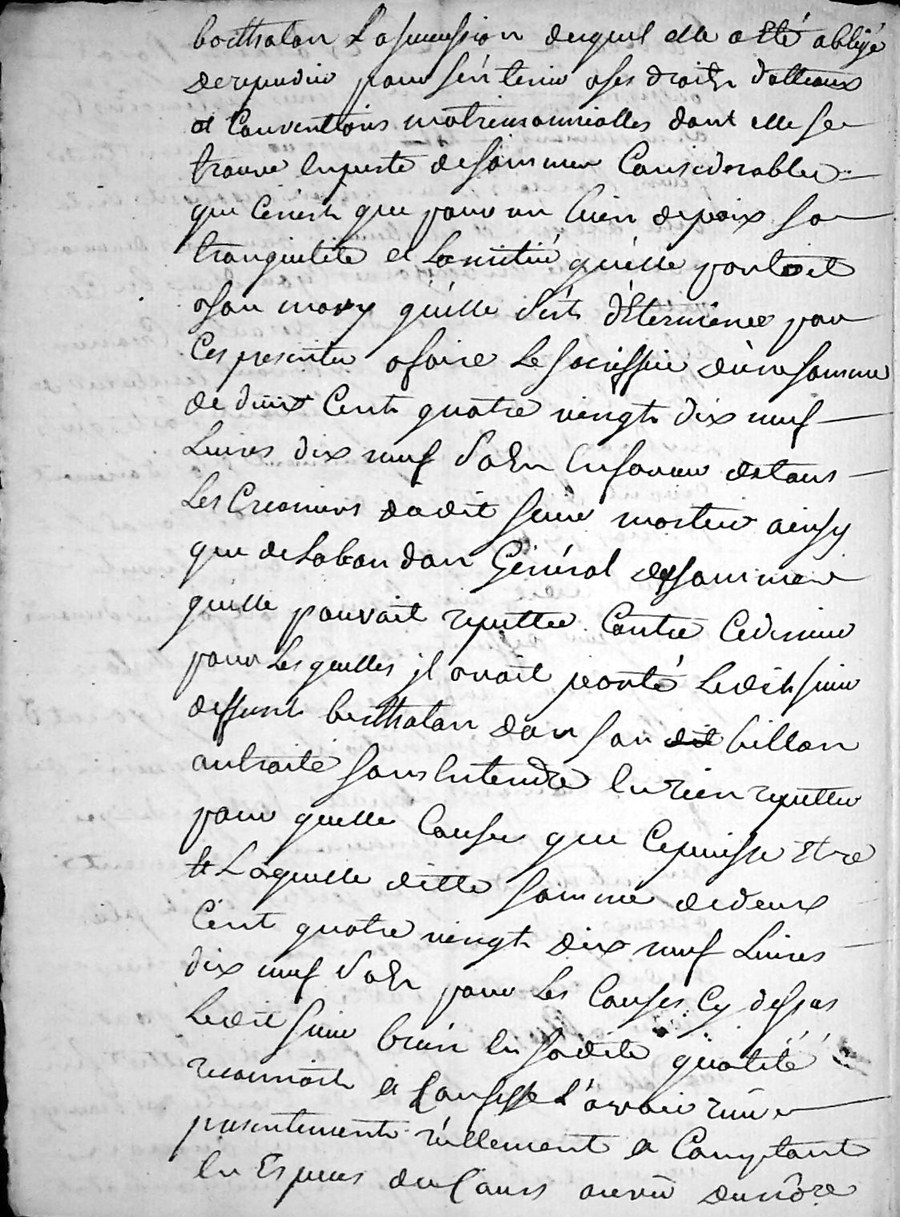 berthalon La sucession duquel elle a été obligé
de repudier pour s'en tenir a ses droits dotteaux
et Conventions matrimonnialles dont elle se
trouve en perte de sommes Considerables
que Ce n'est que pour un bien de paix sa
tranquilité et L'amitié qu'elle portoit
a son mary qu'elle s'est d'éterminée par
Ces presentes a faire Le sacriffice d'une somme
de deux Cents quatre vingt dix neuf
Livres dix neuf sols En faveur de tous
Les Creanciers dudit sieur mortier ainsy
que de L'abandon Général des sommes
qu'elle pouvait repetter Contre Ce dernier
pour Les quelles jl avait porté Ledit sieur
deffunt berthalon dans son billan
au traité sans Entendre En rien repetter
pour quelle Cause que Ce puisse Etre
Laquelle ditte somme de deux
Cent quatre vingt dix neuf Livres
dix neuf sols pour Les Causes Cy dessus
Ledit sieur brun En sadite qualité
reconnoit et Confesse L'avoir reüe
presentement réellement et Comptant
En Especes du Cours au vû de nôre